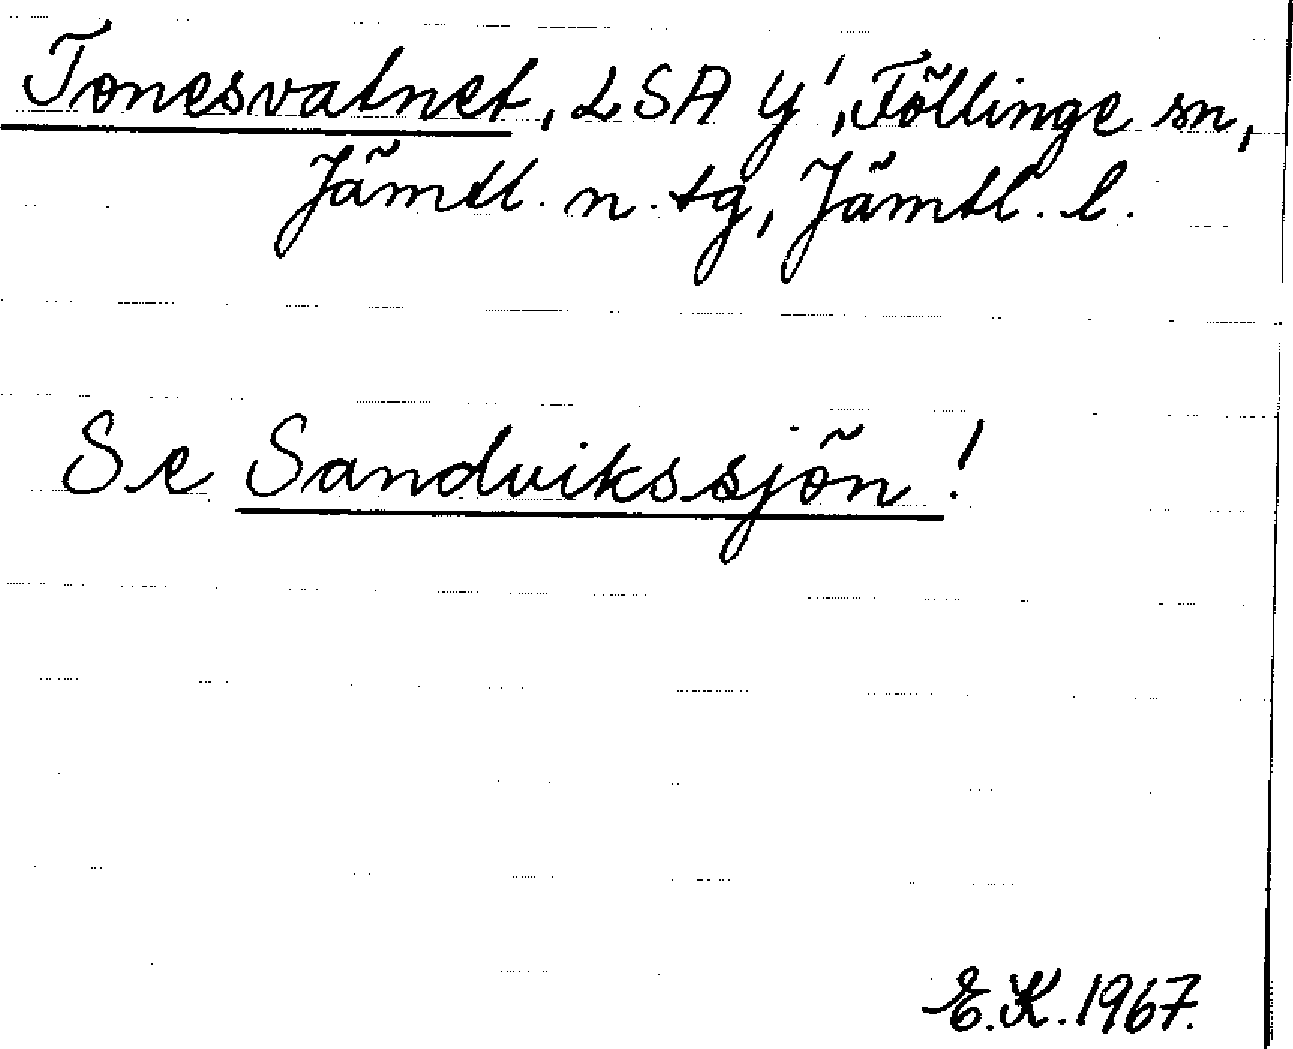 Tonesvatnet, LSA y', Föllinge sn,
Jämtl. n. tg, Jämtl. l.
Se Sandvikssjön!
E.K. 1967.